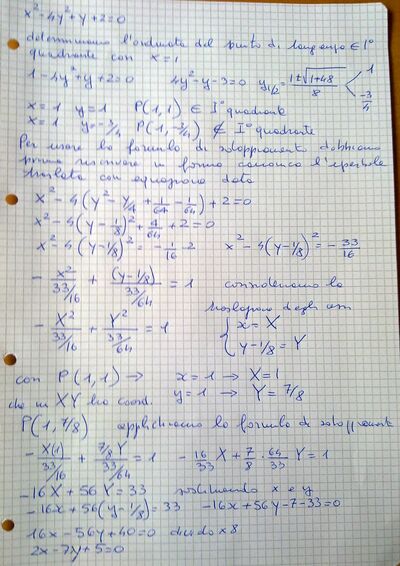 x² - 4y² + y + 2 = 0
determiniamo l'ordinata del punto di tangenza ∈ I°
quadrante con x = 1
1 - 4y² + y + 2 = 0   4y² - y - 3 = 0   y₁/₂ = (1 ± √(1+48))/8   1   -3/4
x = 1   y = 1   P(1, 1) ∈ I° quadrante
x = 1   y = -3/4   P(1, -3/4) ∉ I° quadrante
Per usare la formula di sdoppiamento dobbiamo
prima riscrivere in forma canonica l'iperbole
traslata con equazione data
x² - 4(y² - y/4 + 1/64 - 1/64) + 2 = 0
x² - 4(y - 1/8)² + 4/64 + 2 = 0
x² - 4(y - 1/8)² = -1/16 - 2   x² - 4(y - 1/8)² = -33/16
- x²/(33/16) + (y - 1/8)²/(33/64) = 1   consideriamo la
traslazione degli assi
- X²/(33/16) + Y²/(33/64) = 1   { x = X
y - 1/8 = Y
con P(1, 1) → x = 1 → X = 1
y = 1 → Y = 7/8
che in XY ha coord.
P(1, 7/8) applichiamo la formula di sdoppiament
- X(1)/(33/16) + 7/8 Y/(33/64) = 1   - 16/33 X + 7/8 · 64/33 Y = 1
-16X + 56Y = 33   sostituendo x e y
-16x + 56(y - 1/8) = 33   -16x + 56y - 7 - 33 = 0
16x - 56y + 40 = 0 divido x 8
2x - 7y + 5 = 0